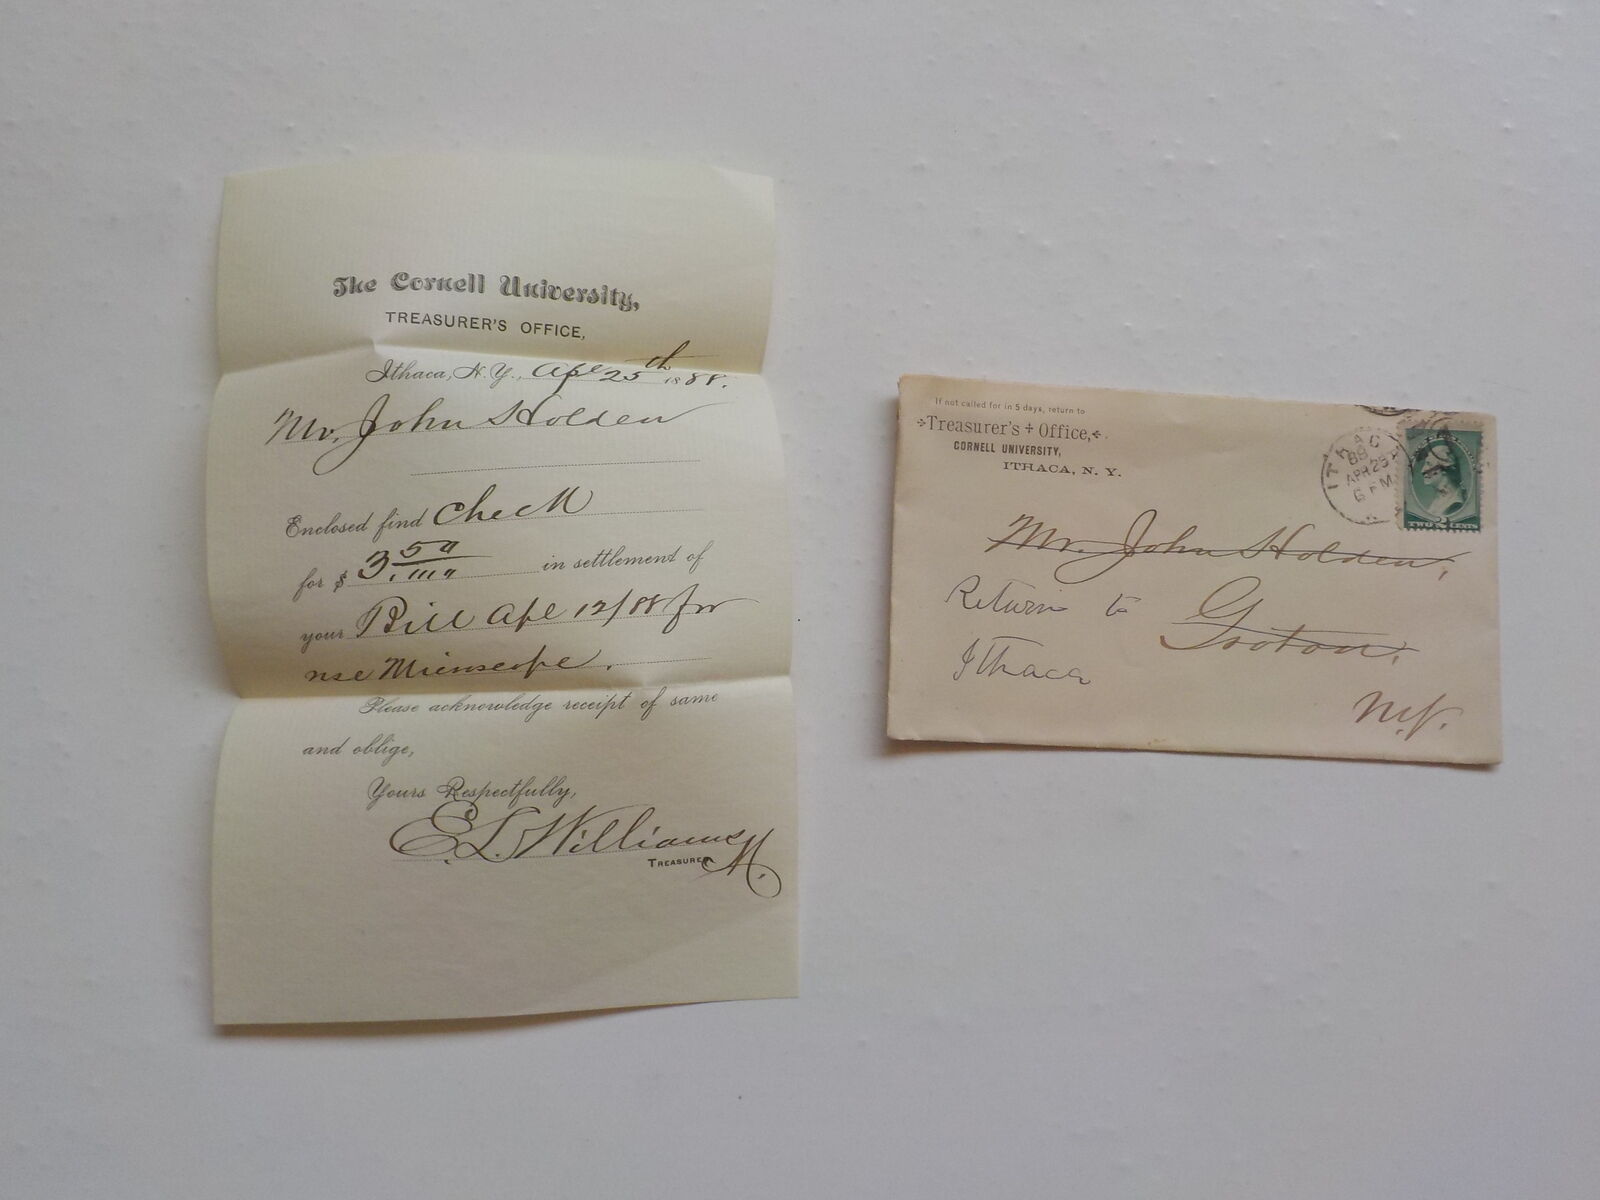 The Cornell University,
TREASURER'S OFFICE,
Ithaca, N.Y., Apl 25th 1888.
Mr. John Holden
Enclosed find Check
for $ 3.50 in settlement of
your Bill Apl 12/88 for
use Microscope.
Please acknowledge receipt of same
and oblige,
Yours Respectfully,
E. L. Williams
TREASURER
If not called for in 5 days, return to
Treasurer's + Office,
CORNELL UNIVERSITY,
ITHACA, N. Y.
ITHACA
88
APR 25
6 PM
TWO 2 CENTS
Mr. John Holden,
Return to Groton,
Ithaca
N.Y.